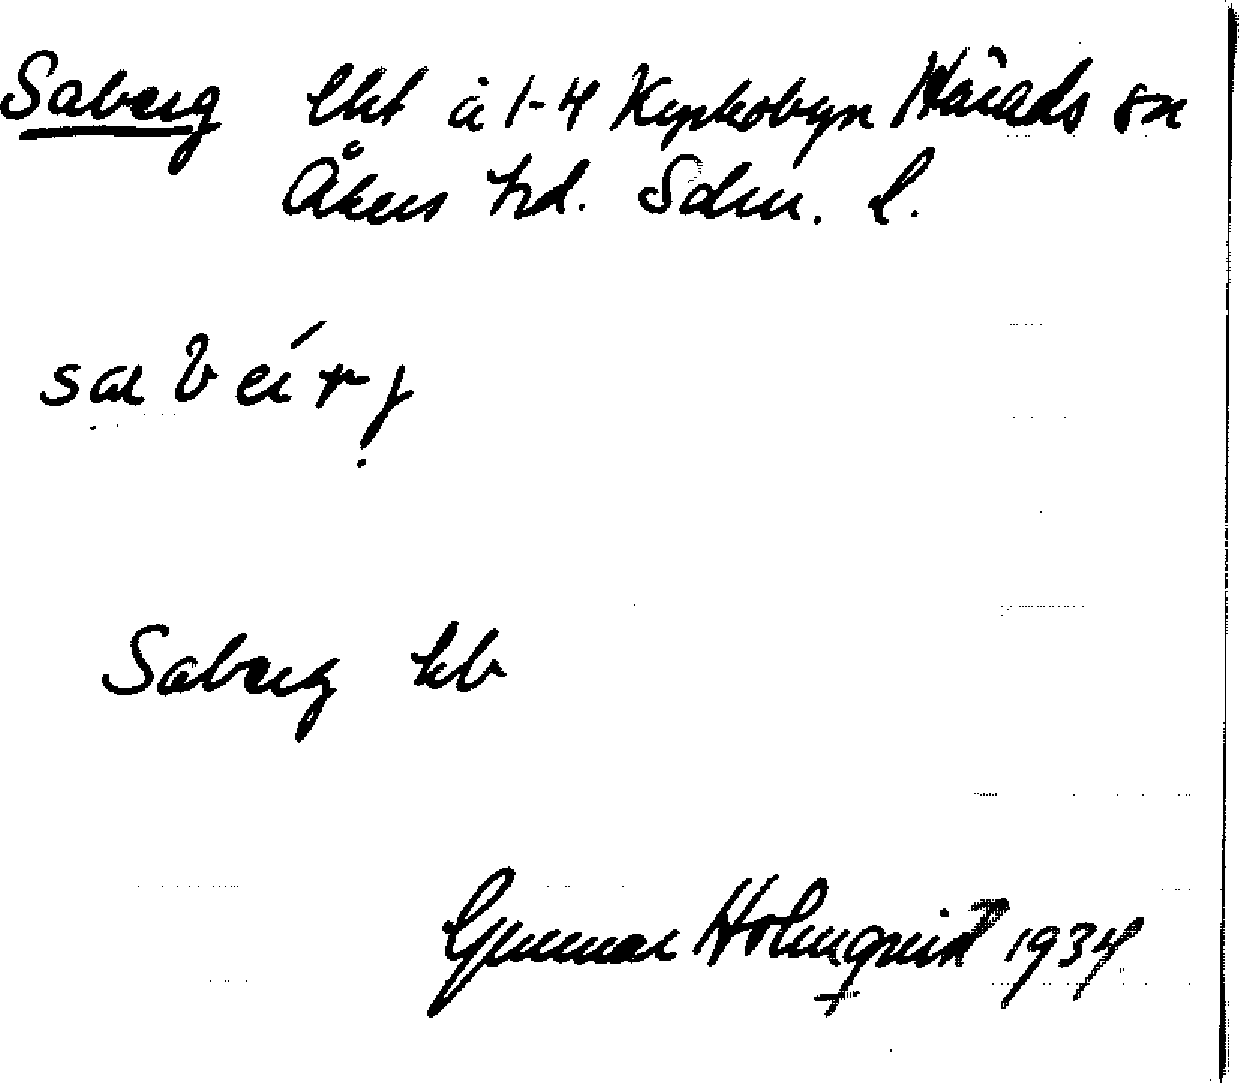 Saberg lht å 1-4 Kyrkobyn Härads sn
Åkers hd. Sdm. l.
Saberg kb
Gunnar Holmqvist 1934